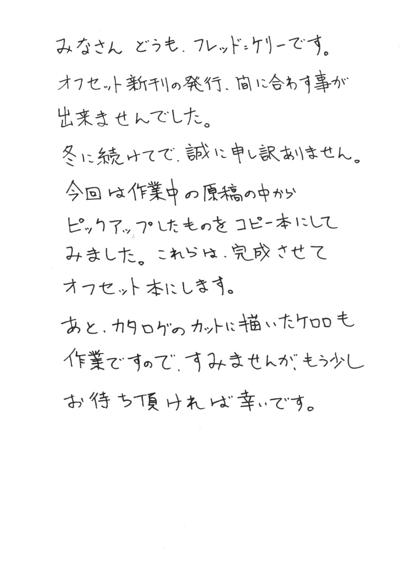 みなさん どうも、フレッド=ケリーです。
オフセット新刊の発行、間に合わす事が
出来ませんでした。
冬に続けてで、誠に申し訳ありません。
今回は作業中の原稿の中から
ピックアップしたものをコピー本にして
みました。これらは、完成させて
オフセット本にします。
あと、カタログのカットに描いたケロロも
作業ですので、すみませんが、もう少し
お待ち頂ければ幸いです。